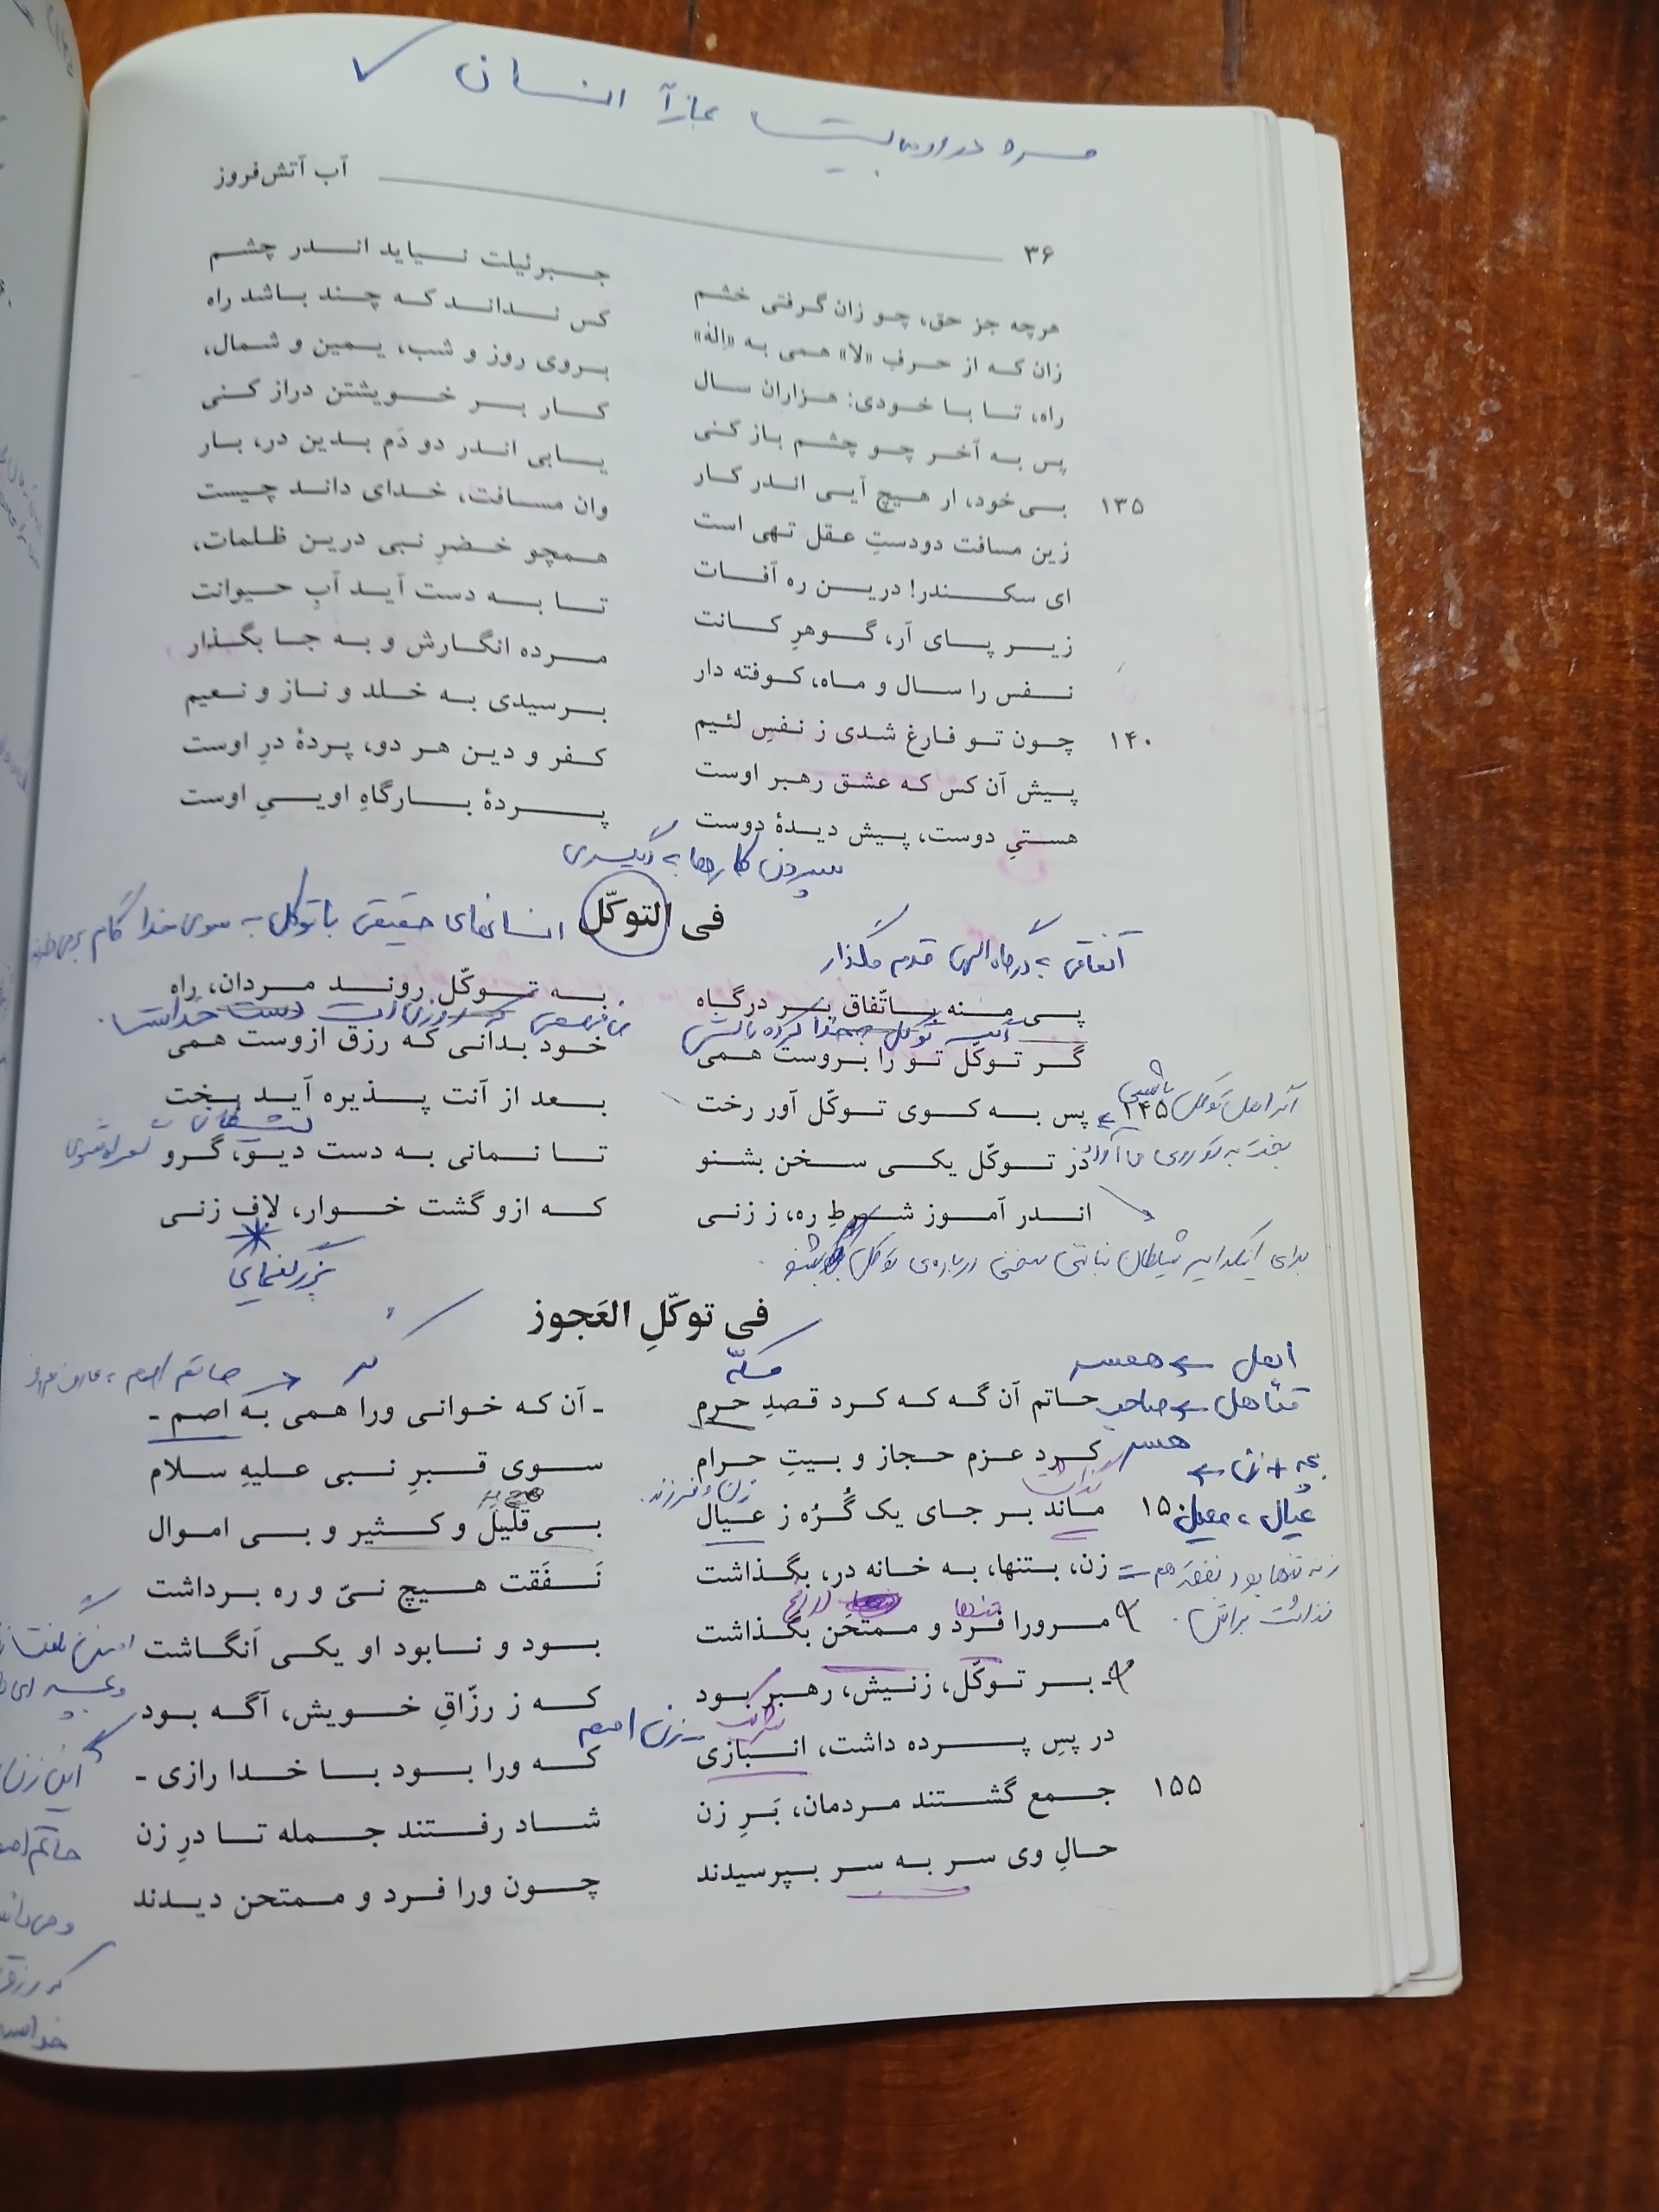 مرده در این بیت مجازاً انسان
آب آتش‌فروز
۳۶
هرچه جز حق، چو زان گرفتی خشم جبرئیلت نیاید اندر چشم
زان که از حرفِ «لا» همی به «اله» کس نداند که چند باشد راه
راه، تا با خودی: هزاران سال بروی روز و شب، یمین و شمال،
پس به آخر چو چشم باز کنی کار بر خویشتن دراز کنی
۱۳۵ بی‌خود، ار هیچ آیی اندر کار یابی اندر دو دَم بدین در، بار
زین مسافت دودستِ عقل تهی است وان مسافت، خدای داند چیست
ای سکندر! درین ره آفات همچو خضرِ نبی درین ظلمات،
زیر پای آر، گوهرِ کانت تا به دست آید آبِ حیوانت
نفس را سال و ماه، کوفته دار مرده انگارش و به جا بگذار
۱۴۰ چون تو فارغ شدی ز نفسِ لئیم برسیدی به خلد و ناز و نعیم
پیش آن کس که عشق رهبر اوست کفر و دین هر دو، پردهٔ درِ اوست
هستیِ دوست، پیش دیدهٔ دوست پردهٔ بارگاهِ اوییِ اوست
سپردن کارها به دیگری
فی التوکّل
انسانهای حقیقی با توکل به سوی خدا گام
اتفاقی به درگاه الهی قدم مگذار
پی منه باتّفاق بر درگاه به توکّل روند مردان، راه
گر توکّل تو را بروست همی خود بدانی که رزق ازوست همی
۱۴۵ پس به کوی توکّل آور رخت بعد از آنت پذیره آید بخت
اگر اهل توکل باشی
بخت به تو روی می‌آورد
در توکّل یکی سخن بشنو تا نمانی به دست دیو، گرو
شیطان
اندر آموز شرطِ ره، ز زنی که ازو گشت خوار، لافِ زنی
برای اینکه اسیر شیطان نباشی سخنی درباره‌ی توکل بشنو
فی توکّلِ العَجوز
مکّه
اهل ← همسر
متأهل ← صاحب همسر
حاتم اصم
حاتم آن گه که کرد قصدِ حرم ـ آن که خوانی ورا همی به اصم ـ
کرد عزم حجاز و بیتِ حرام سوی قبرِ نبی علیهِ سلام
بچه + زن ←
زن و فرزند
۱۵ ماند بر جای یک گُرُه ز عیال بی‌قلیل و کثیر و بی اموال
زن، بتنها، به خانه در، بگذاشت نَفَقت هیچ نیّ و ره برداشت
زن تنها بود نفقه هم
نذاشت برایش
مرورا فرد و ممتحَن بگذاشت بود و نابود او یکی اَنگاشت
ـ بر توکّل، زنیش، رهبر بود که ز رزّاقِ خویش، آگه بود
زن اصم
در پسِ پرده داشت، انبازی که ورا بود با خدا رازی ـ
۱۵۵ جمع گشتند مردمان، بَرِ زن شاد رفتند جمله تا درِ زن
حالِ وی سر به سر بپرسیدند چون ورا فرد و ممتحن دیدند
این زن